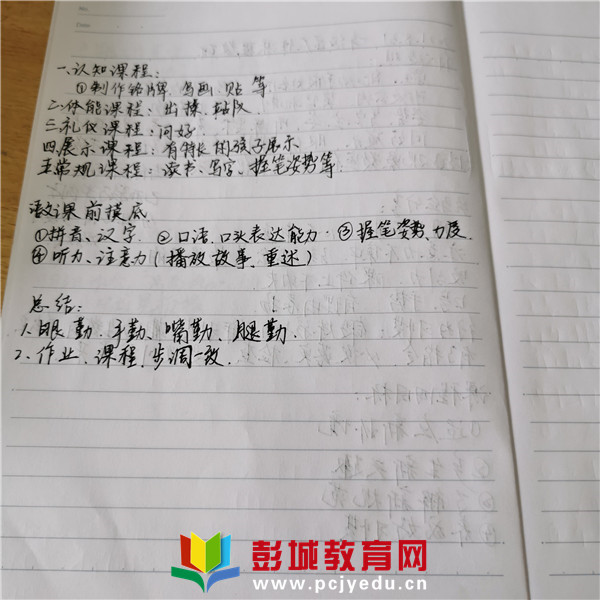 No.
Date.
一、认知课程：
①制作铭牌、写画、贴等
二、体能课程：出操、站队
三、礼仪课程：问好
四、展示课程：有特长的孩子展示
五、常规课程：读书、写字、握笔姿势等.
语文课前摸底
①拼音、汉字. ②口语、口头表达能力. ③握笔姿势、力度.
④听力、注意力（播放故事、重述）
总结：
1、眼勤、手勤、嘴勤、腿勤.
2、作业、课程、步调一致.
彭城教育网
www.pcjyedu.cn